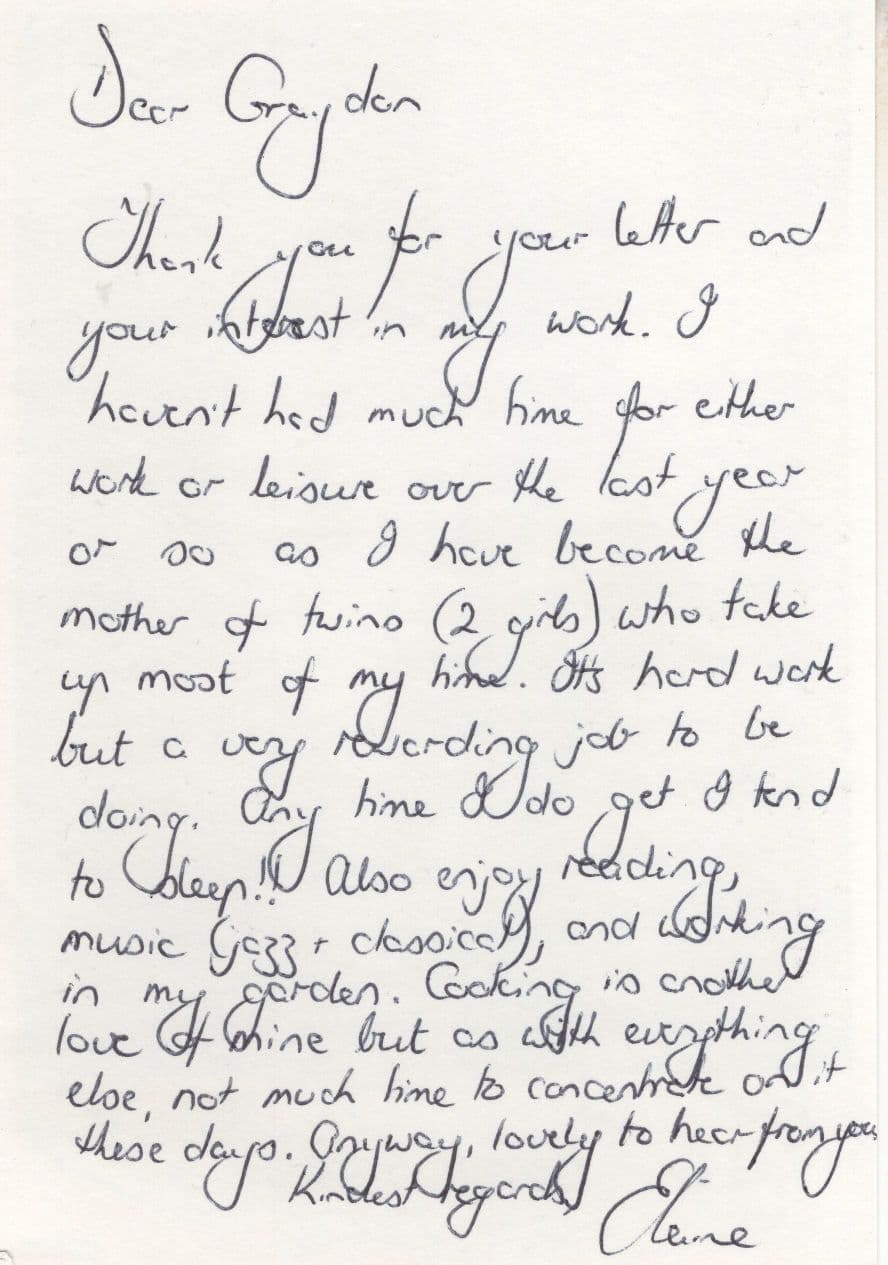 Dear Graydon
Thank you for your letter and
your interest in my work. I
haven't had much time for either
work or leisure over the last year
or so as I have become the
mother of twins (2 girls) who take
up most of my time. It's hard work
but a very rewarding job to be
doing. Any time I do get I tend
to sleep!! Also enjoy reading,
music (jazz + classical), and working
in my garden. Cooking is another
love of mine but as with everything
else, not much time to concentrate on it
these days. Anyway, lovely to hear from you.
Kindest regards,
Elaine